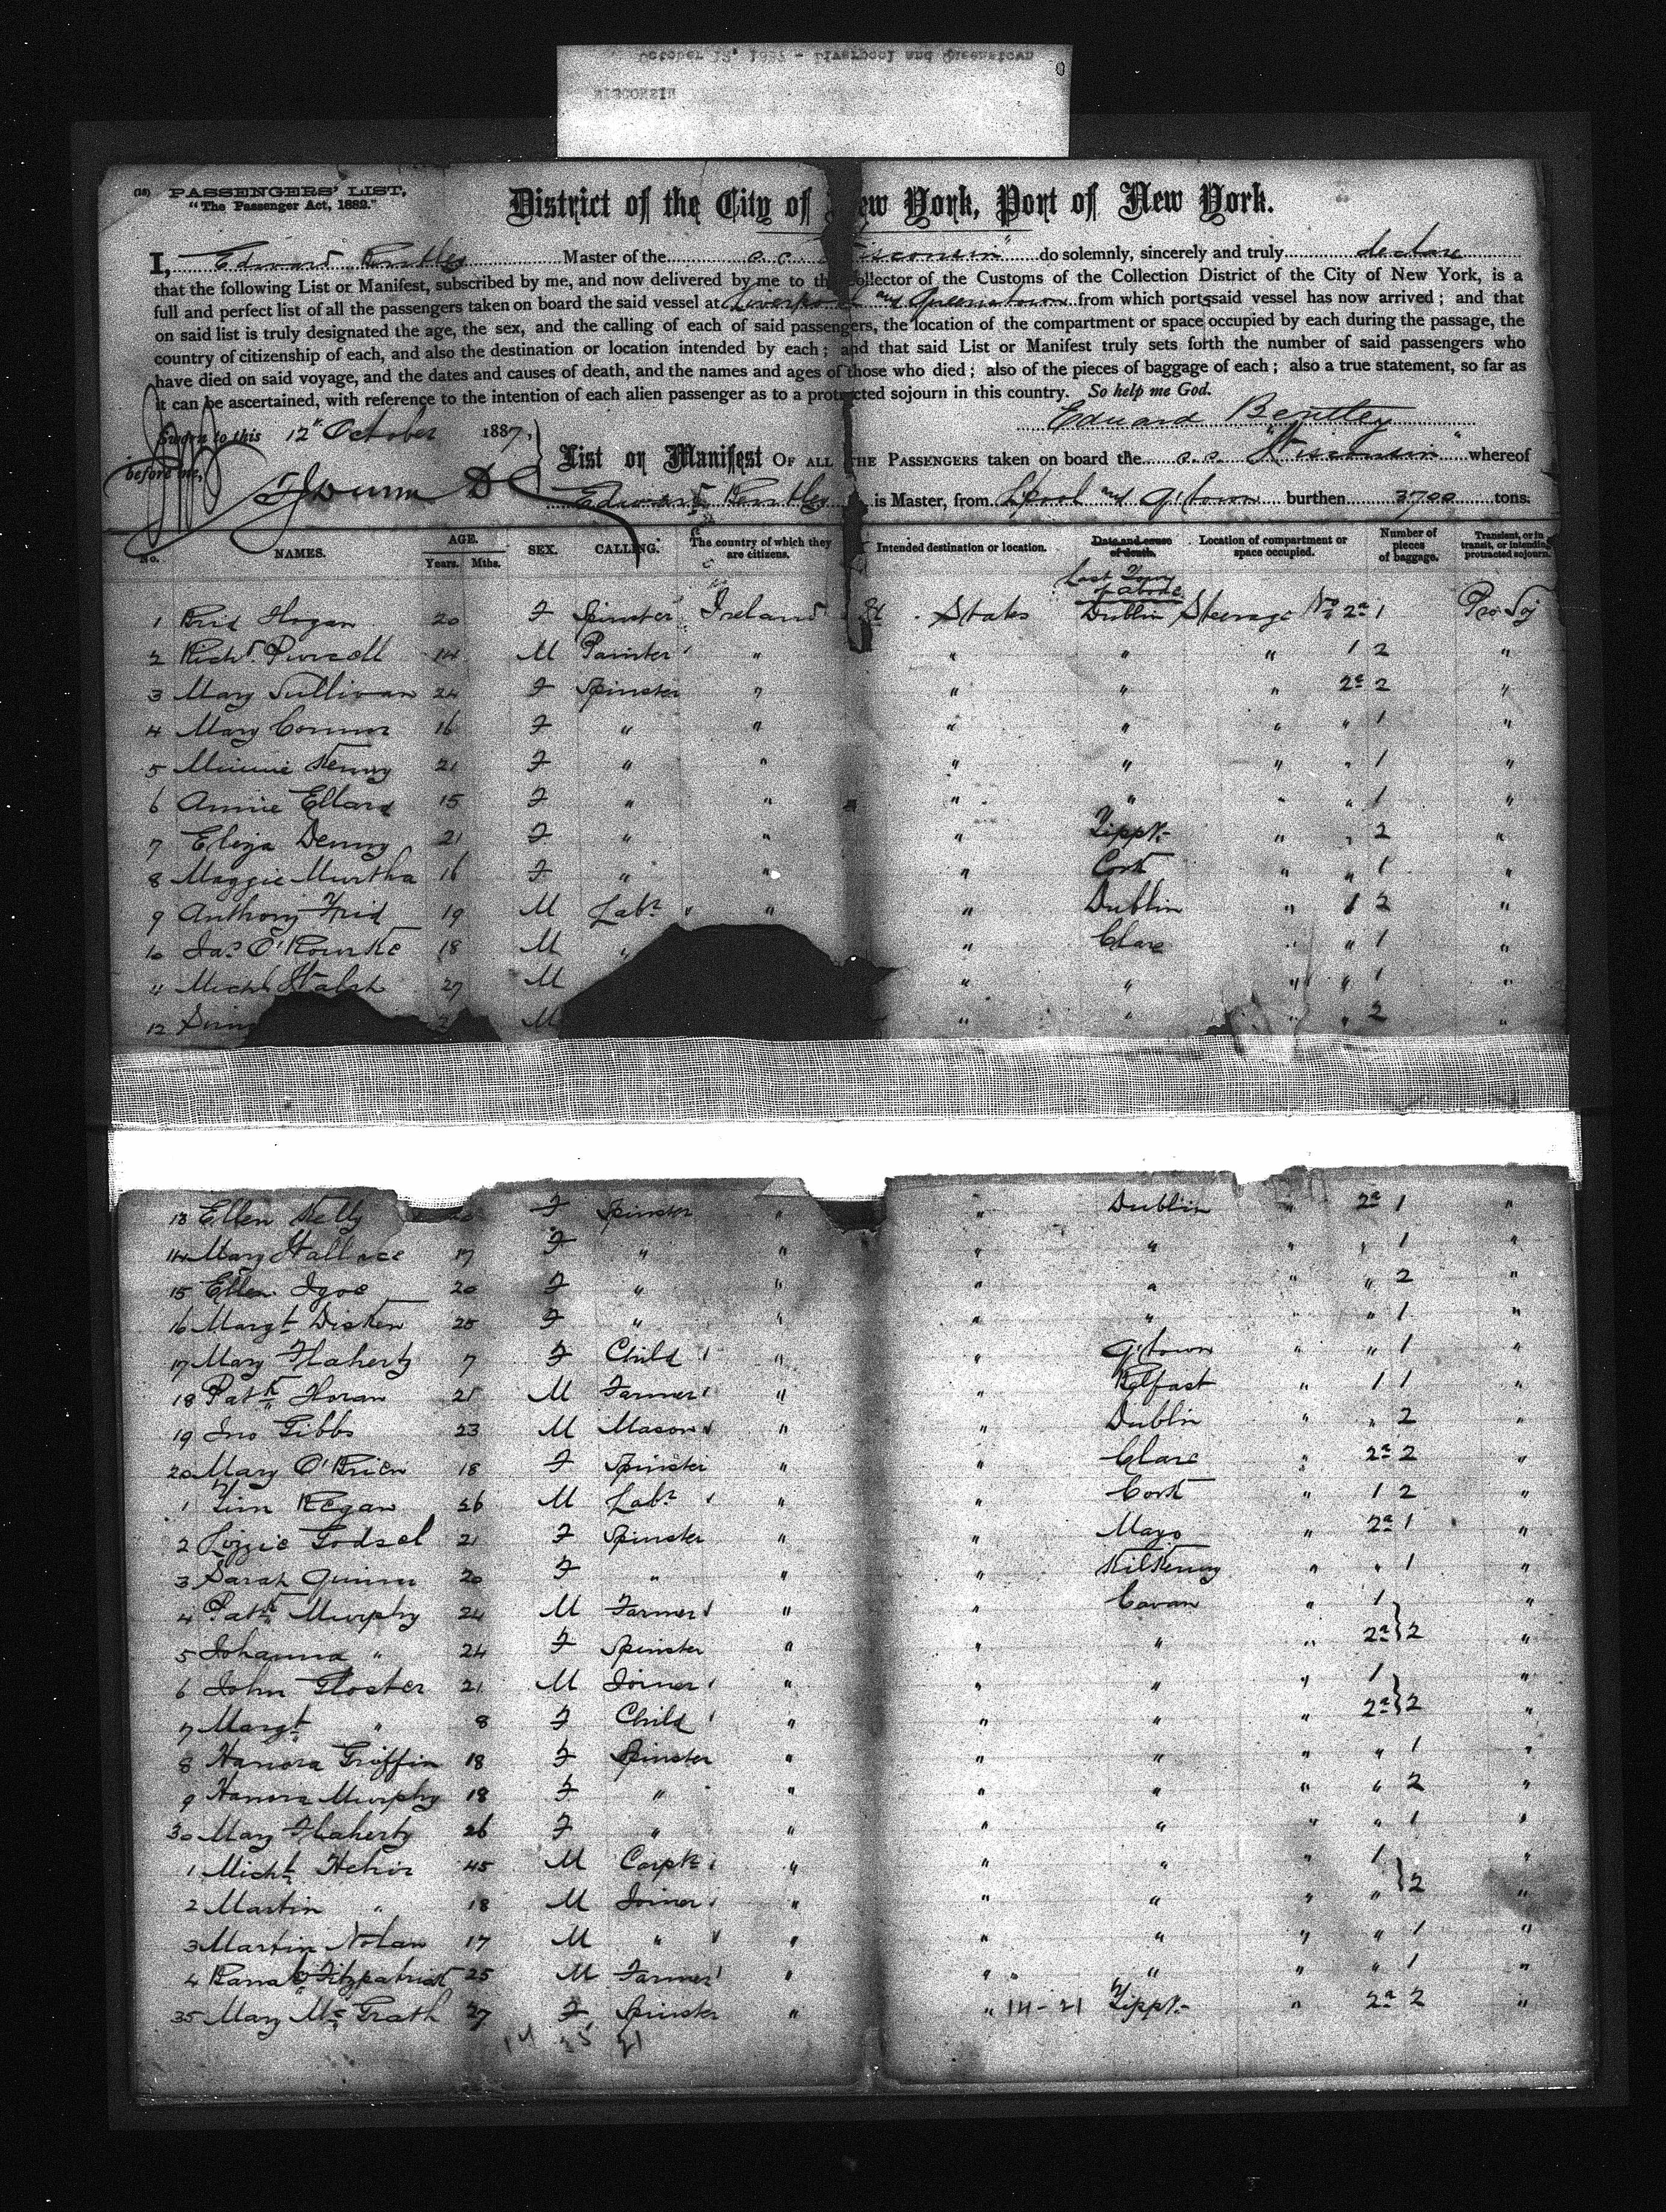 October 12, 1887 - Liverpool and Queenstown
WISCONSIN
(18) PASSENGERS' LIST.
"The Passenger Act, 1882."
District of the City of New York, Port of New York.
I, Edward Bentley Master of the s.s. Wisconsin" do solemnly, sincerely and truly declare
that the following List or Manifest, subscribed by me, and now delivered by me to the Collector of the Customs of the Collection District of the City of New York, is a
full and perfect list of all the passengers taken on board the said vessel at Liverpool and Queenstown from which ports said vessel has now arrived; and that
on said list is truly designated the age, the sex, and the calling of each of said passengers, the location of the compartment or space occupied by each during the passage, the
country of citizenship of each, and also the destination or location intended by each; and that said List or Manifest truly sets forth the number of said passengers who
have died on said voyage, and the dates and causes of death, and the names and ages of those who died; also of the pieces of baggage of each; also a true statement, so far as
it can be ascertained, with reference to the intention of each alien passenger as to a protracted sojourn in this country. So help me God.
Edward Bentley
Sworn to this 12th October 1887,
before me,
List or Manifest OF ALL THE PASSENGERS taken on board the s.s. "Wisconsin" whereof
Edward Bentley is Master, from L'pool and Q'town burthen 3700 tons.
No. NAMES. AGE. Years. Mths. SEX. CALLING. The country of which they are citizens. Intended destination or location. Date and cause of death. Location of compartment or space occupied. Number of pieces of baggage. Transient, or in transit, or intending protracted sojourn.
Last Town of abode
1 Brid Hogan 20 F Spinster Ireland States Dublin Steerage No 2a 1 Pro Soj
2 Richd Purcell 14 M Painter " " " " 1 2 "
3 Mary Sullivan 24 F Spinster " " " " 2a 2 "
4 Mary Connor 16 F " " " " " " 1 "
5 Minnie Kenny 21 F " " " " " " 1 "
6 Annie Ellard 15 F " " " " " " 1 "
7 Eliza Denny 21 F " " " Tippy " " 2 "
8 Maggie Murtha 16 F " " " Cork " " 1 "
9 Anthony Frid 19 M Labr " " Dublin " 1 2 "
10 Jas O'Rourke 18 M " " Clare " " 1 "
11 Michl Walsh 27 M " " " " 1 "
12 M " " " " 2 "
13 Ellen Kelly F Spinster " " Dublin " 2a 1 "
14 Mary Wallace 17 F " " " " " " 1 "
15 Ellen Igoe 20 F " " " " " " 2 "
16 Margt Disken 25 F " " " " " " 1 "
17 Mary Flaherty 7 F Child " " Q'town " " 1 "
18 Patk Horan 21 M Farmer " " Belfast " 1 1 "
19 Jno Gibbs 23 M Mason " " Dublin " " 2 "
20 Mary O'Brien 18 F Spinster " " Clare " 2a 2 "
1 Tim Regan 26 M Labr " " Cork " 1 2 "
2 Lizzie Godsel 21 F Spinster " " Mayo " 2a 1 "
3 Sarah Quinn 20 F " " " Kilkenny " " 1 "
4 Patk Murphy 24 M Farmer " " Cavan " 1 "
5 Johanna " 24 F Spinster " " " " 2a } 2 "
6 John Gloster 21 M Joiner " " " " 1 "
7 Margt " 8 F Child " " " " 2a } 2 "
8 Hanora Griffin 18 F Spinster " " " " " 1 "
9 Hanora Murphy 18 F " " " " " " 2 "
30 Mary Flaherty 26 F " " " " " " 1 "
1 Michl Hehir 45 M Carptr " " " " 1 "
2 Martin " 18 M Joiner " " " " " } 2 "
3 Martin Nolan 17 M " " " " " " 1 "
4 Fitzpatrick 25 M Farmer " " " " " 1 "
35 Mary McGrath 27 F Spinster " " 14-21 Tippy " 2a 2 "
14 35 21